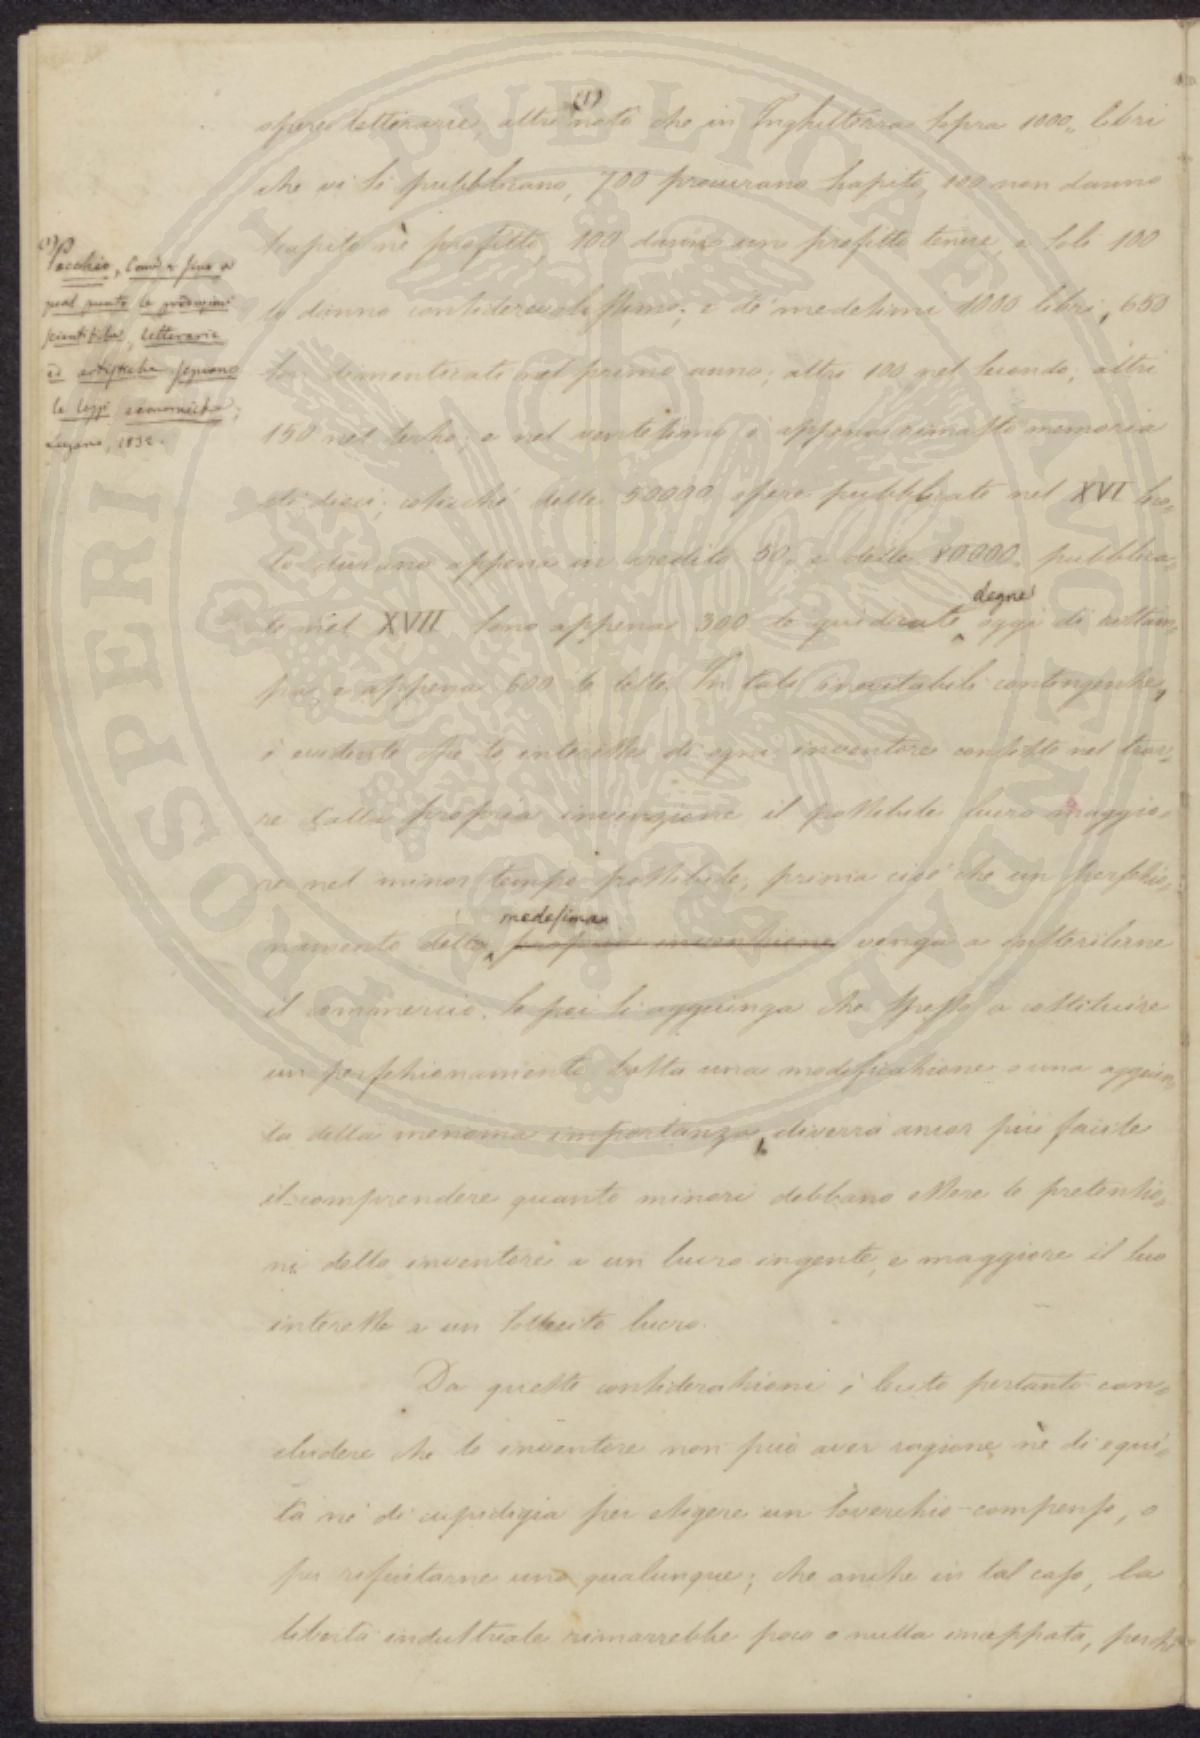 (1)
opere letterarie, altri notò che in Inghilterra sopra 1000 libri
che vi si pubblicano, 700 procurano scapito, 100 non danno
scapito nè profitto, 100 danno un profitto tenue, e soli 100
lo danno considerevolissimo; e de' medesimi 1000 libri, 650
son dimenticati nel primo anno; altri 100 nel secondo; altri
150 nel terzo; e nel ventesimo è appena rimasta memoria
di dieci; cosicché delle 50000 opere pubblicate nel XVI seco-
lo durano appena in credito 50, e delle 80000 pubblica-
te nel XVII sono appena 300 le giudicate degne oggi di ristam-
pa, e appena 600 le lette. In tali inevitabili contingenze,
è evidente che lo interesse di ogni inventore consiste nel trar-
re dalla propria invenzione il possibile lucro maggio-
re nel minor tempo possibile, prima cioè che un perfezio-
namento della medesima propria invenzione venga a insterilirne
il commercio. Se poi si aggiunga che spesso a costituire
un perfezionamento basta una modificazione o una aggiun-
ta della menoma importanza, diverrà ancor più facile
il comprendere quanto minori debbano essere le pretensio-
ni dello inventore a un lucro ingente, e maggiore il suo
interesse a un sollecito lucro.
Da queste considerazioni è lecito pertanto con-
cludere che lo inventore non può aver ragione nè di equi-
tà nè di cupidigia per esigere un soverchio compenso, o
per rifiutarne uno qualunque; che anche in tal caso, la
libertà industriale rimarrebbe poco o nulla inceppata, perchè
(1) Pecchio, Come e fino a
qual punto le produzioni
scientifiche, letterarie
ed artistiche seguano
le leggi economiche;
Lugano, 1832.
PROSPERITATI PUBLICAE AUGENDAE